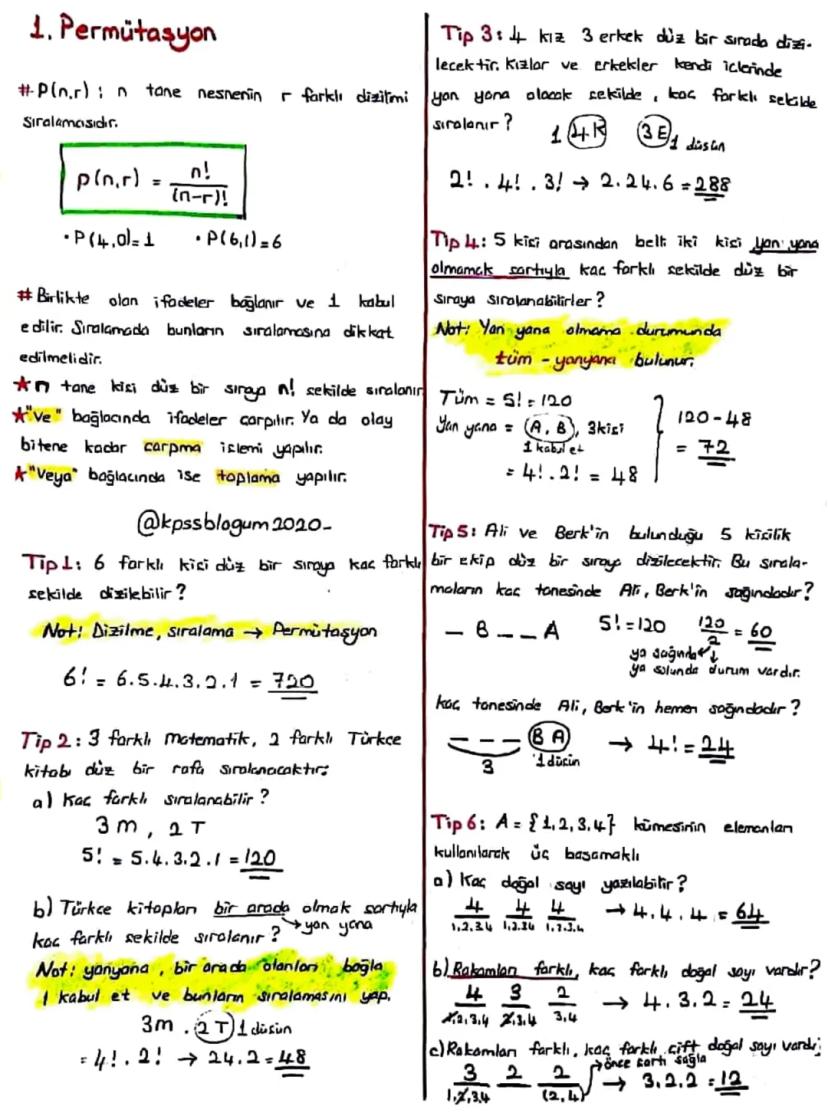 1. Permütasyon
# P(n,r) : n tane nesnenin r farklı dizilimi
sıralamasıdır.
P(n,r) = n! / (n-r)!
• P(4,0)=1 • P(6,1)=6
# Birlikte olan ifadeler bağlanır ve 1 kabul
edilir. Sıralamada bunların sıralamasına dikkat
edilmelidir.
★ n tane kişi düz bir sıraya n! şekilde sıralanır
★ "ve" bağlacında ifadeler çarpılır. Ya da olay
bitene kadar çarpma işlemi yapılır.
★ "Veya" bağlacında ise toplama yapılır.
@kpssblogum2020-
Tip 1: 6 farklı kişi düz bir sıraya kaç farklı
şekilde dizilebilir?
Not: Dizilme, sıralama → Permütasyon
6! = 6.5.4.3.2.1 = 720
Tip 2: 3 farklı matematik, 2 farklı Türkçe
kitabı düz bir rafa sıralanacaktır;
a) Kaç farklı sıralanabilir?
3m, 2T
5! = 5.4.3.2.1 = 120
b) Türkçe kitapları bir arada olmak şartıyla
→ yan yana
kaç farklı şekilde sıralanır?
Not: yanyana, bir arada olanları bağla
1 kabul et ve bunların sıralamasını yap.
3m . 2T 1 düşün
= 4! . 2! → 24.2 = 48
Tip 3: 4 kız 3 erkek düz bir sırada dizi-
lecektir. Kızlar ve erkekler kendi içlerinde
yan yana olacak şekilde, kaç farklı şekilde
sıralanır?
1 4K 3E 1 düşün
2! . 4! . 3! → 2.24.6 = 288
Tip 4: 5 kişi arasından belli iki kişi yan yana
olmamak şartıyla kaç farklı şekilde düz bir
sıraya sıralanabilirler?
Not: Yan yana olmama durumunda
tüm - yanyana bulunur.
Tüm = 5! = 120
Yan yana = (A, B), 3kişi
1 kabul et
= 4! . 2! = 48
120-48
= 72
Tip 5: Ali ve Berk'in bulunduğu 5 kişilik
bir ekip düz bir sıraya dizilecektir. Bu sırala-
maların kaç tanesinde Ali, Berk'in sağındadır?
_ B _ _ A 5! = 120 120/2 = 60
ya sağında
ya solunda durum vardır.
kaç tanesinde Ali, Berk'in hemen sağındadır?
_ _ _ (B A) → 4! = 24
3 1 düşün
Tip 6: A = {1,2,3,4} kümesinin elemanları
kullanılarak üç basamaklı
a) Kaç doğal sayı yazılabilir?
4 4 4 → 4.4.4 = 64
1,2,3,4 1,2,3,4 1,2,3,4
b) Rakamları farklı, kaç farklı doğal sayı vardır?
4 3 2 → 4.3.2 = 24
1,2,3,4 2,3,4 3,4
c) Rakamları farklı, kaç farklı çift doğal sayı vardır;
→ önce şartı sağla
3 2 2 → 3.2.2 = 12
1,2,3,4 (2,4)